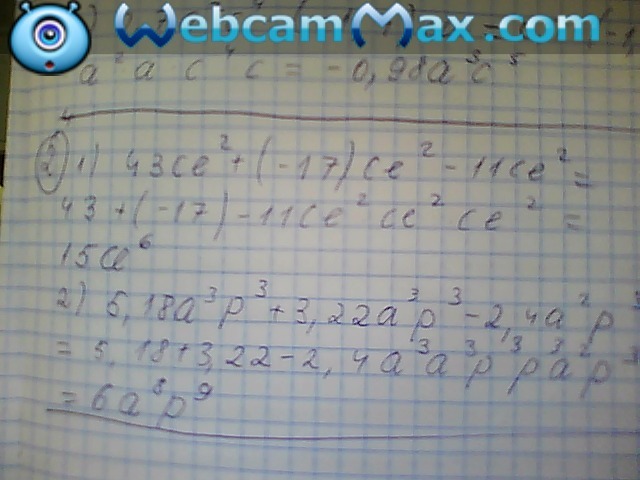 WebcamMax.com
a² a c⁴ c = -0,98a³c⁵
1) 43ce² + (-17)ce² - 11ce² =
43 + (-17) - 11ce² ce² ce² =
15ce⁶
2) 5,18a³p³ + 3,22a³p³ - 2,4a²p³
= 5,18 + 3,22 - 2,4a³a³p³p³a²p³
= 6a⁸p⁹